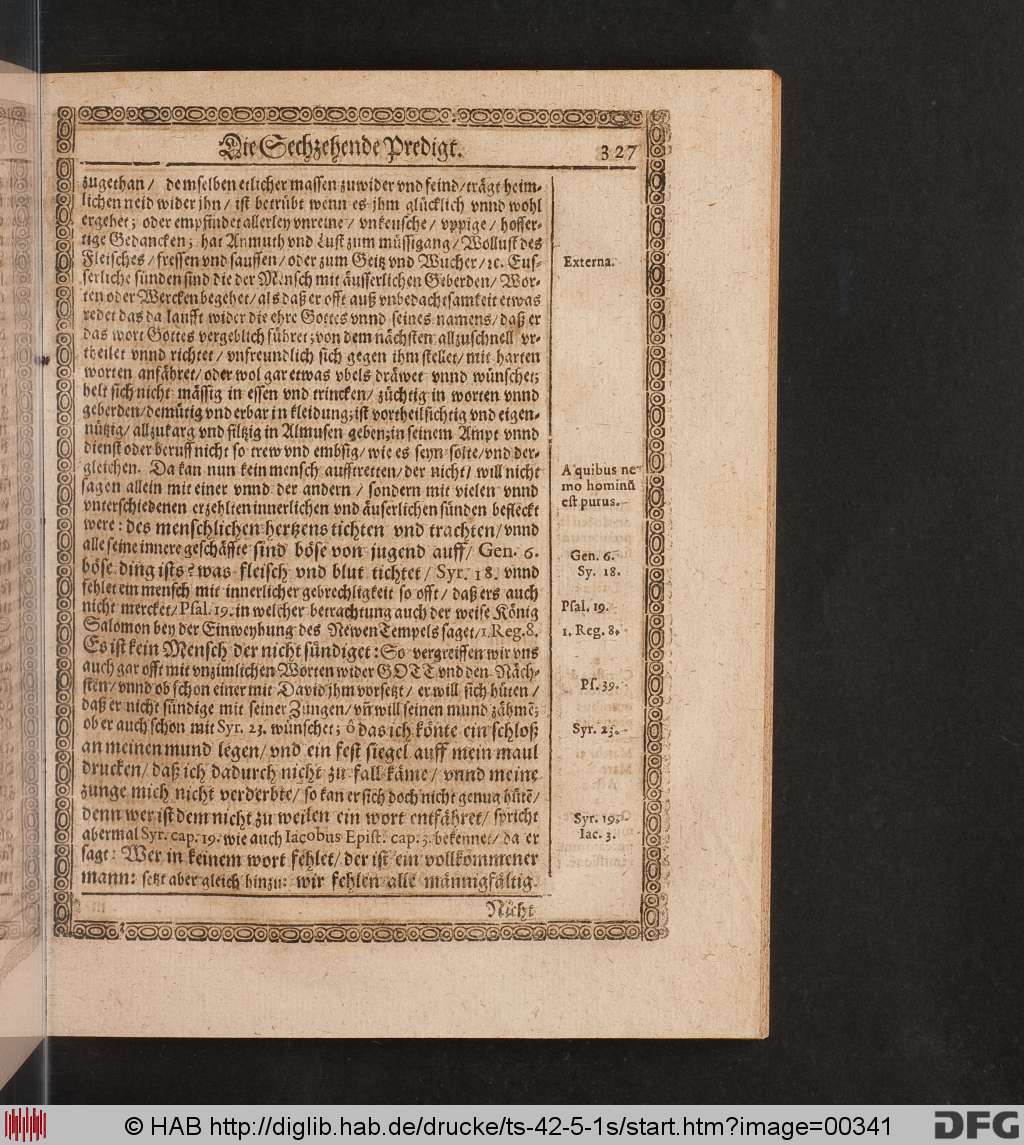 Die Sechzehende Predigt. 327
zugethan / demselben etlicher massen zuwider vnd feind / trägt heim-
lichen neid wider jhn / ist betrübt wenn es jhm glücklich vnnd wohl
ergehet; oder empfindet allerley vnreine / vnkeusche / vppige / hoffer-
tige Gedancken; hat Anmuth vnd Lust zum müssigang / Wollust des
Fleisches / fressen vnd sauffen / oder zum Geitz vnd Wucher / ꝛc. Eus-
serliche sünden sind die der Mensch mit äusserlichen Geberden / Wor-
ten oder Wercken begehet / als daß er offt auß vnbedachtsamkeit etwas
redet das da laufft wider die ehre Gottes vnnd seines namens / daß er
das wort Gottes vergeblich führet; von dem nächsten allzuschnell vr-
theilet vnnd richtet / vnfreundlich sich gegen ihm stellet / mit harten
worten anfähret / oder wol gar etwas vbels dräwet vnnd wünschet;
helt sich nicht mässig in essen vnd trincken / züchtig in worten vnnd
geberden / demütig vnd erbar in kleidung; ist vortheilsichtig vnd eigen-
nützig / allzukarg vnd filtzig in Almusen geben; in seinem Ampt vnnd
dienst oder beruff nicht so trew vnd embsig / wie es seyn solte / vnd der-
gleichen. Da kan nun kein mensch aufftretten / der nicht / will nicht
sagen allein mit einer vnnd der andern / sondern mit vielen vnnd
vnterschiedenen erzehlten innerlichen vnd äuserlichen sünden befleckt
were : des menschlichen hertzens tichten vnd trachten / vnnd
alle seine innere geschäffte sind böse von jugend auff / Gen. 6.
böse ding ists? was fleisch vnd blut tichtet / Syr. 18. vnnd
fehlet ein mensch mit innerlicher gebrechligkeit so offt / daß ers auch
nicht mercket / Psal. 19. in welcher betrachtung auch der weise König
Salomon bey der Einweyhung des Newen Tempels saget / 1. Reg. 8.
Es ist kein Mensch der nicht sündiget : So vergreiffen wir vns
auch gar offt mit vnzimlichen Worten wider GOTT vnd den Näch-
sten / vnnd ob schon einer mit David jhm vorsetzt / er will sich hüten /
daß er nicht sündige mit seiner Zungen / vñ will seinen mund zähmẽ;
ob er auch schon mit Syr. 23. wünschet; ô das ich könte ein schloß
an meinen mund legen / vnd ein fest siegel auff mein maul
drucken / daß ich dadurch nicht zu fall käme / vnnd meine
zunge mich nicht verderbte / so kan er sich doch nicht genug hütẽ /
denn wer ist dem nicht zu weilen ein wort entfähret / spricht
abermal Syr. cap. 19. wie auch Iacobus Epist. cap. 3. bekennet / da er
sagt : Wer in keinem wort fehlet / der ist ein vollkommener
mann: setzt aber gleich hinzu: wir fehlen alle männigfältig.
Nicht
Externa.
A quibus ne-
mo hominũ
est purus.
Gen. 6.
Sy. 18.
Psal. 19.
1. Reg. 8.
Ps. 39.
Syr. 23.
Syr. 19.
Iac. 3.
© HAB http://diglib.hab.de/drucke/ts-42-5-1s/start.htm?image=00341
DFG